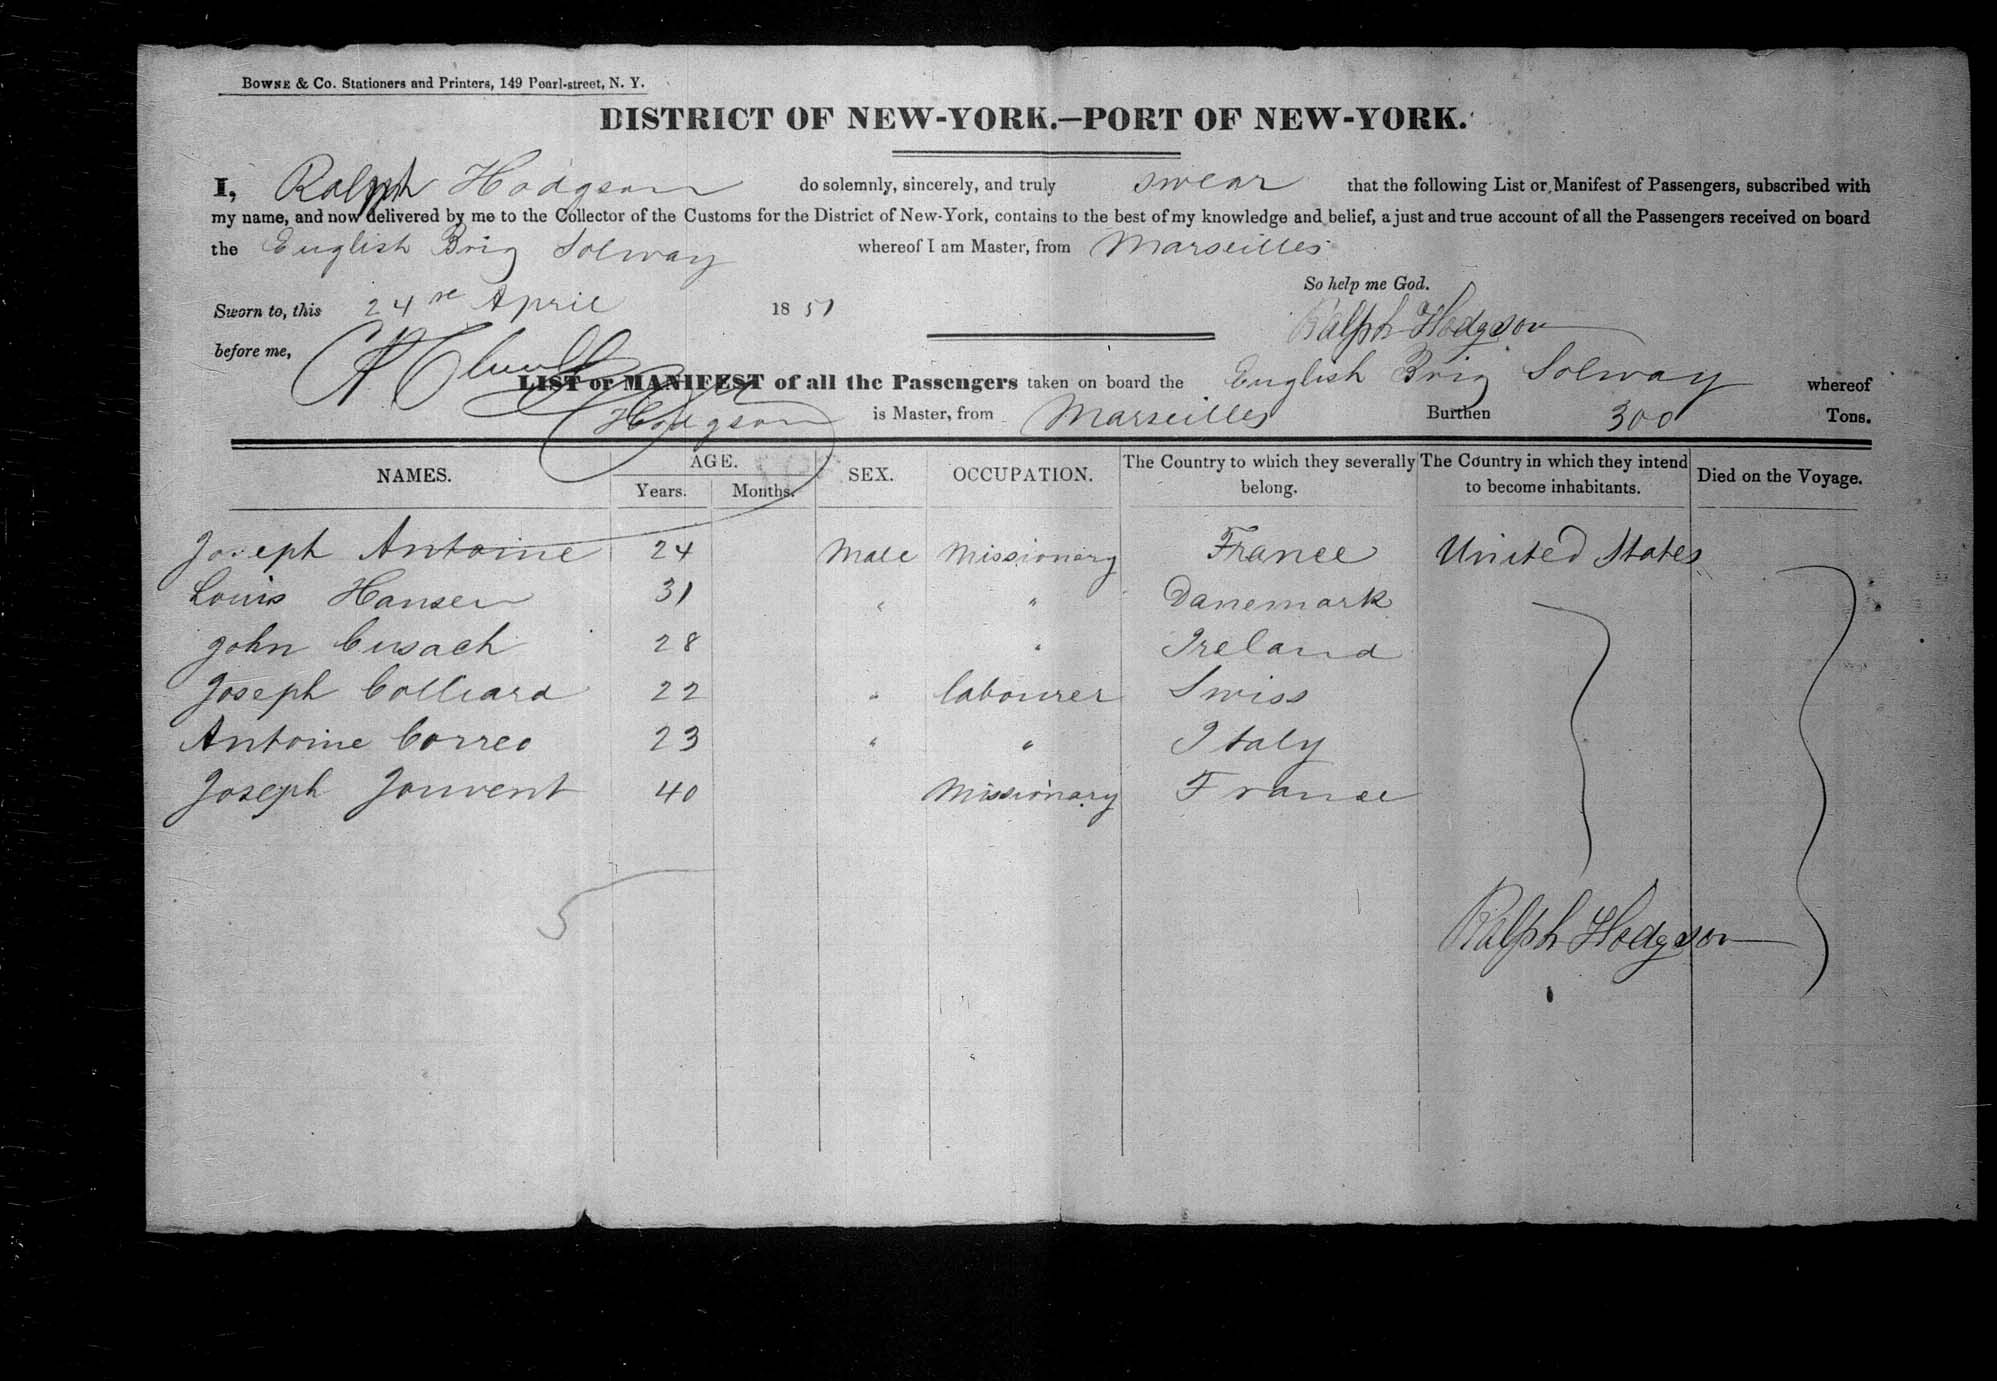 BOWNE & Co. Stationers and Printers, 149 Pearl-street, N. Y.
DISTRICT OF NEW-YORK.—PORT OF NEW-YORK.
I, Ralph Hodgson do solemnly, sincerely, and truly swear that the following List or Manifest of Passengers, subscribed with
my name, and now delivered by me to the Collector of the Customs for the District of New-York, contains to the best of my knowledge and belief, a just and true account of all the Passengers received on board
the English Brig Solway whereof I am Master, from Marseilles
So help me God.
Sworn to, this 24 April 1851
Ralph Hodgson
before me,
LIST or MANIFEST of all the Passengers taken on board the English Brig Solway whereof
Hodgson is Master, from Marseilles Burthen 300 Tons.
NAMES. AGE. SEX. OCCUPATION. The Country to which they severally belong. The Country in which they intend to become inhabitants. Died on the Voyage.
Years. Months.
Joseph Antoine 24 Male Missionary France United States
Louis Hansen 31 " " Danemark
John Cusach 28 " Ireland
Joseph Colliard 22 " labourer Swiss
Antoine Correo 23 " " Italy
Joseph Jouvent 40 Missionary France
5
Ralph Hodgson